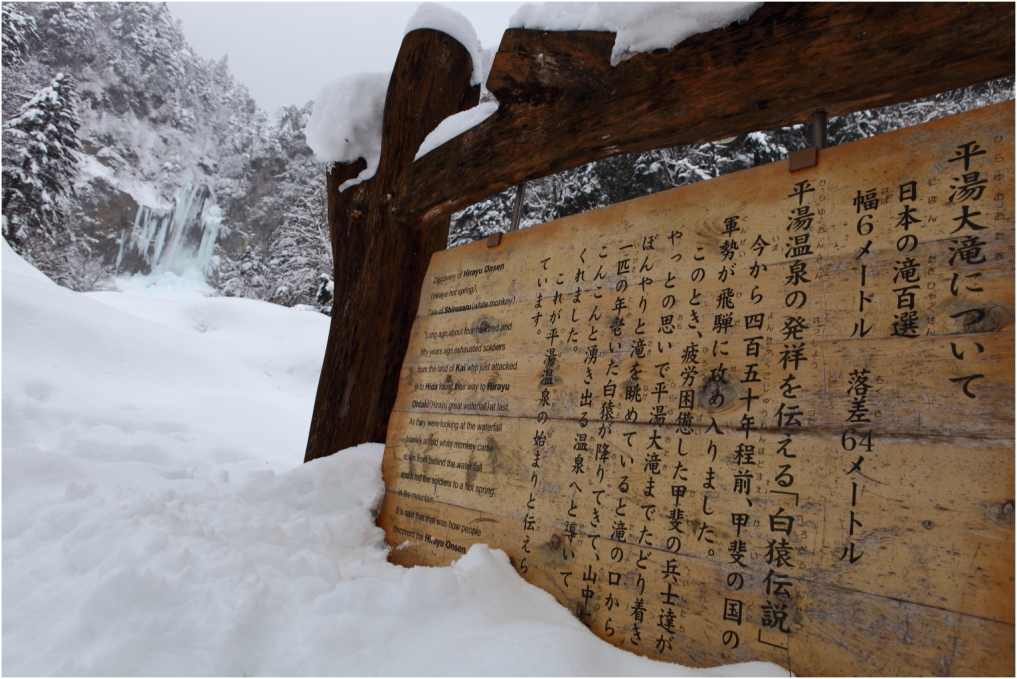 平湯大滝について
日本の滝百選
幅6メートル　落差64メートル
平湯温泉の発祥を伝える「白猿伝説」
今から四百五十年程前、甲斐の国の
軍勢が飛騨に攻め入りました。
このとき、疲労困憊した甲斐の兵士達が
やっとの思いで平湯大滝までたどり着き
ぼんやりと滝を眺めていると滝の口から
一匹の年老いた白猿が降りてきて、山中に
こんこんと湧き出る温泉へと導いて
くれました。
これが平湯温泉の始まりと伝えら
ています。
Discovery of Hirayu Onsen
(Hirayu hot spring)
Tale of Shirozaru (white monkey)
"Long ago about four hundred and
fifty years ago exhausted soldiers
from the land of Kai who just attacked
to Hida found their way to Hirayu
Ohtaki (Hirayu great waterfall) at last.
As they were looking at the waterfall
blankly an old white monkey came
down from behind the water fall
and led the soldiers to a hot spring
in the mountain.
It is said that that was how people
discovered the Hirayu Onsen.